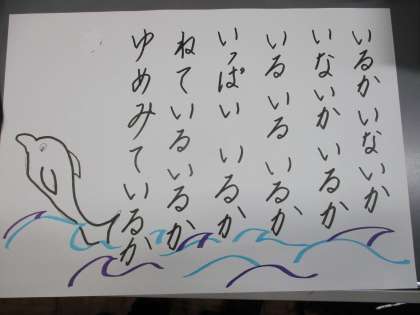 いるかいないか
いないかいるか
いるいるいるか
いっぱいいるか
ねているいるか
ゆめみているか